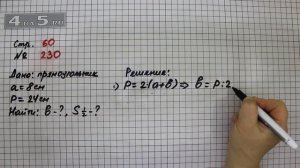 Стр. 60
№ 230
Дано: прямоугольник
a = 8см
P = 24см
Найти: b - ?, S
Решение:
1) P = 2(a+b) ⇒ b = P:2